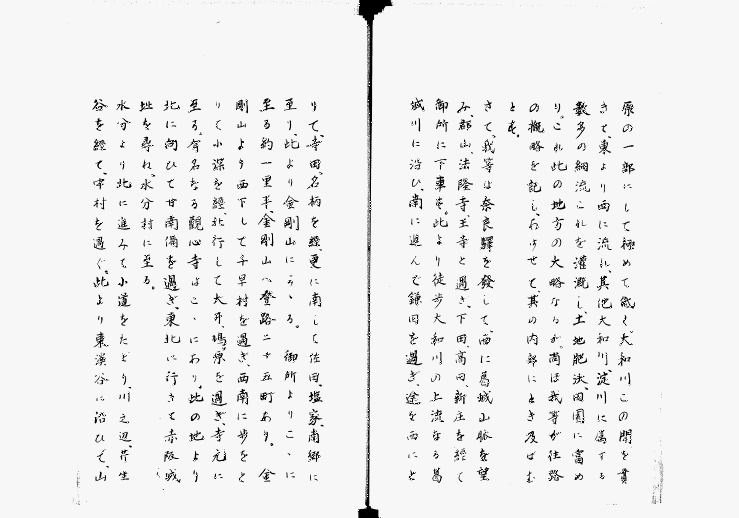 原の一部にして極めて低く、大和川この間を貫
きて、東より西に流れ、其他大和川、淀川に属する
数多の細流これを灌漑し、土地肥沃、田園に富め
り。これ此の地方の大略ならが、尚ほ我等が往路
の概略を記し、あはせて、其の内部にとき及ばむ
とす。
さて、我等は奈良驛を發して、西に葛城山脈を望
み、郡山、法隆寺、王寺と過ぎ、下田、高田、新庄を経て
御所に下車す。此より徒歩大和川の上流なる葛
城川に沿ひ、南に進んで鎌田を過ぎ、途を西にと
りて、寺田、名柄を経、更に南して佐田、塩家、南郷に
至り、此より金剛山にうゝる。御所よりこゝに
至る約一里半、金剛山へ登路二十五町あり。金
剛山より西下して千早村を過ぎ、西南に歩をと
りて小深を経、北行して大井、鳩原を過ぎ、寺元に
至る。有名なる観心寺はこゝにあり。此の地より
北に向ひて甘南備を過ぎ、東北に行きて赤阪城
址を尋ね、水分村に至る。
水分より北に進みて小道をたどり、川之辺、芹生
谷を経て、中村を過ぐ。此より東溪谷に沿ひて、山